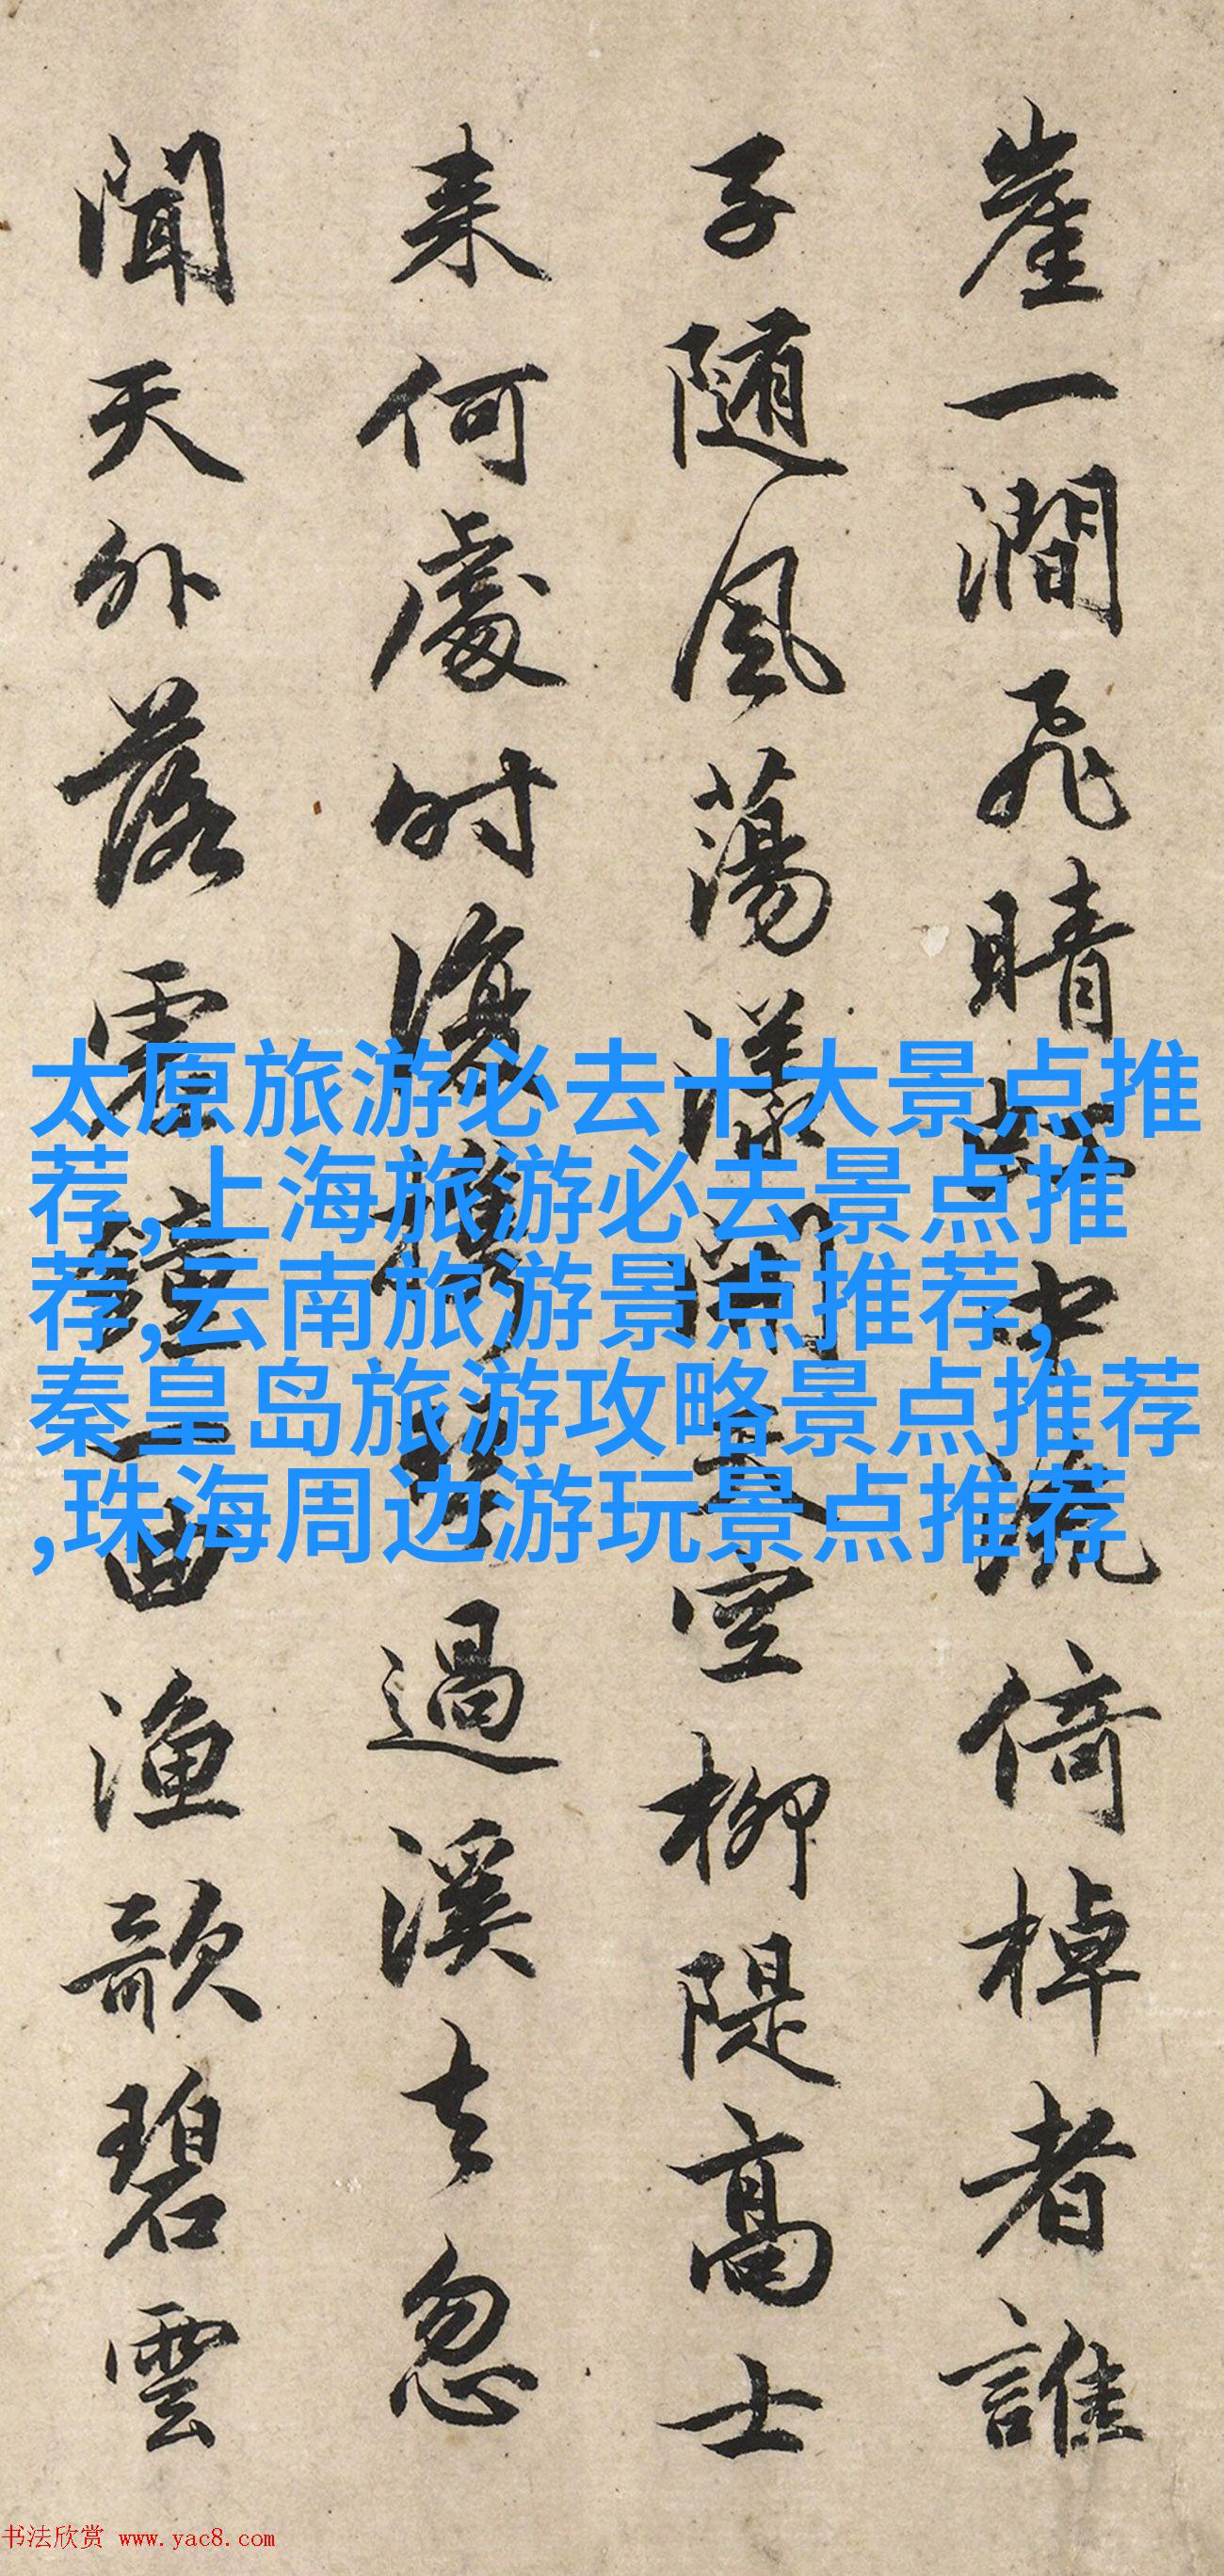 崖一澗飛晴中流倚棹者誰
子随風蕩漾空柳隄高士
来何處時復攜琴過溪去忽
聞天外落鐘一曲漁歌碧雲
太原旅游必去十大景点推
荐,上海旅游必去景点推
荐,云南旅游景点推荐,
秦皇岛旅游攻略景点推荐
,珠海周边游玩景点推荐
书法欣赏 www.yac8.com